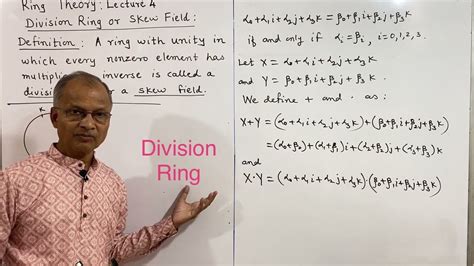 Ring Theory: Lecture 4
Division Ring or Skew Field:
Definition: A ring with unity in
which every nonzero element has
inverse is called a
or a skew field.
K
Division
Ring
α₀+α₁i+α₂j+α₃k = β₀+β₁i+β₂j+β₃k
if and only if αᵢ=βᵢ, i=0,1,2,3.
Let X = α₀+α₁i+α₂j+α₃k
and Y = β₀+β₁i+β₂j+β₃k.
We define + and · as:
X+Y = (α₀+α₁i+α₂j+α₃k)+(β₀+β₁i+β₂j+β₃k)
=(α₀+β₀)+(α₁+β₁)i+(α₂+β₂)j+(α₃+β₃)k
and
X·Y = (α₀+α₁i+α₂j+α₃k)·(β₀+β₁i+β₂j+β₃k)